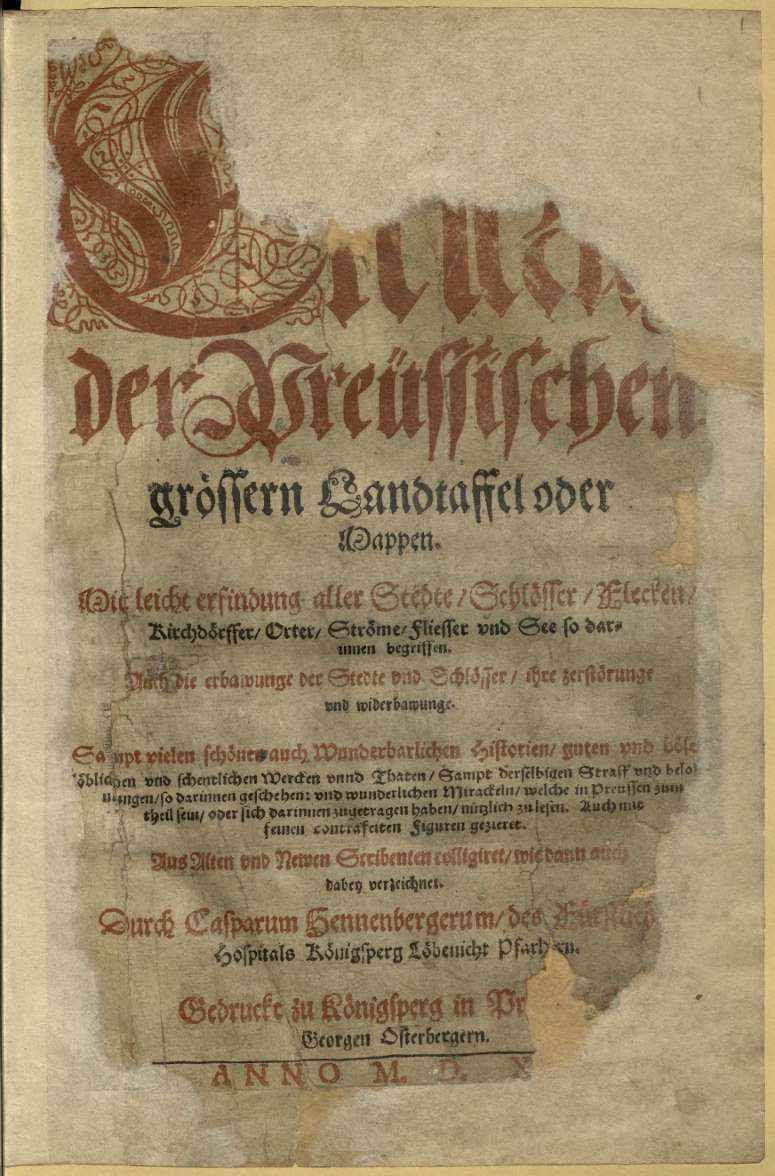 der Preüssischen
grössern Landtaffel oder
Mappen.
Mit leicht erfindung aller Stedte / Schlösser / Flecken /
Kirchdörffer / Orter / Ströme / Fliesser vnd See so dar-
innen begriffen.
Auch die erbawunge der Stedte vnd Schlösser / ihre zerstörunge
vnd widerbawunge.
Sampt vielen schönen auch Wunderbarlichen Historien / guten vnd böse
öblichen vnd schentlichen Wercken vnnd Thaten / Sampt derselbigen Straff vnd belo
nungen / so darinnen geschehen: vnd wunderlichen Mirackeln / welche in Preussen zum
theil sein / oder sich darinnen zugetragen haben / nützlich zu lesen. Auch mit
seinen contrafeiten Figuren gezieret.
Aus Alten vnd Newen Scribenten colligiret / wie dann auch
dabey verzeichnet.
Durch Casparum Hennenbergerum / des Fürstlich
Hospitals Königsperg Löbenicht Pfarhern.
Gedruckt zu Königsperg in Pr
Georgen Osterbergern.
ANNO M. D. X
1